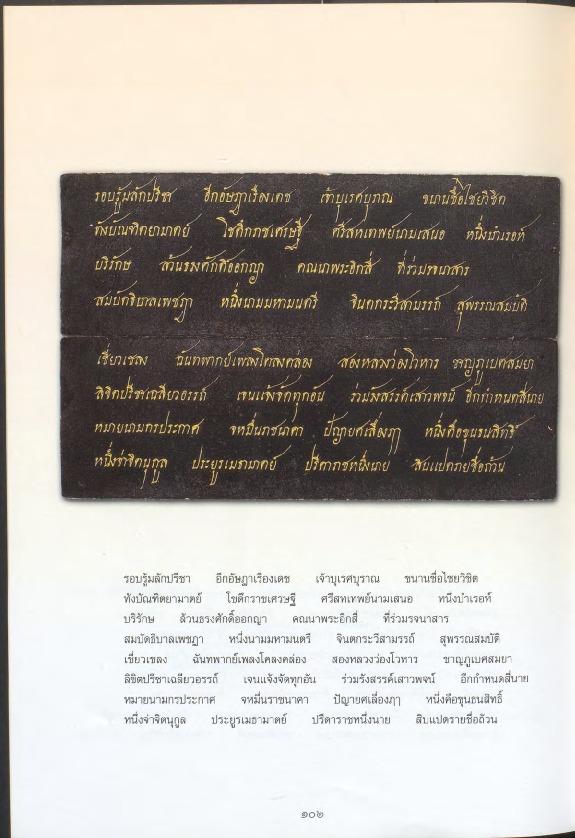 รอบรู้มลักปรีชา อีกอัษฎาเรืองเดช เจ้าบุเรศบุราณ ขนานชื่อไชยวิชิต
ทังบัณฑิตยามาตย์ โชดึกราชเศรษฐี ศรีสหเทพย์นามเสนอ หนึ่งบำเรอห์
บริรักษ ล้วนธรงศักดิ์ออกญา คณนาพระอิกสี่ ที่ร่วมรจนาสาร
สมบัดธิบาลเพชฎา หนึ่งนามมหามนตรี จินดกระวีสามารรถ์ สุพรรณสมบัติ
เชี่ยวเชลง ฉันทพากย์เพลงโคลงคล่อง สองหลวงว่องโวหาร ชาญภูเบศสมยา
ลิขิตปรีชาเฉลียวอรรถ์ เจนแจ้งจัดทุกอัน ร่วมรังสรรค์เสาวพจน์ อีกกำหนดสี่นาย
หมายนามกรประกาศ จหมื่นราชนาคา ปัญายศเลื่องฦๅ หนึ่งคือขุนธนสิทธิ์
หนึ่งจ่าจิตนุกูล ประยูรเมธามาตย์ ปรีดาราชหนึ่งนาย สิบแปดรายชื่อถ้วน
รอบรู้มลักปรีชา อีกอัษฎาเรืองเดช เจ้าบุเรศบุราณ ขนานชื่อไชยวิชิต
ทังบัณฑิตยามาตย์ โชดึกราชเศรษฐี ศรีสหเทพย์นามเสนอ หนึ่งบำเรอห์
บริรักษ ล้วนธรงศักดิ์ออกญา คณนาพระอิกสี่ ที่ร่วมรจนาสาร
สมบัดธิบาลเพชฎา หนึ่งนามมหามนตรี จินดกระวีสามารรถ์ สุพรรณสมบัติ
เชี่ยวเชลง ฉันทพากย์เพลงโคลงคล่อง สองหลวงว่องโวหาร ชาญภูเบศสมยา
ลิขิตปรีชาเฉลียวอรรถ์ เจนแจ้งจัดทุกอัน ร่วมรังสรรค์เสาวพจน์ อีกกำหนดสี่นาย
หมายนามกรประกาศ จหมื่นราชนาคา ปัญายศเลื่องฦๅ หนึ่งคือขุนธนสิทธิ์
หนึ่งจ่าจิตนุกูล ประยูรเมธามาตย์ ปรีดาราชหนึ่งนาย สิบแปดรายชื่อถ้วน
๑๐๖